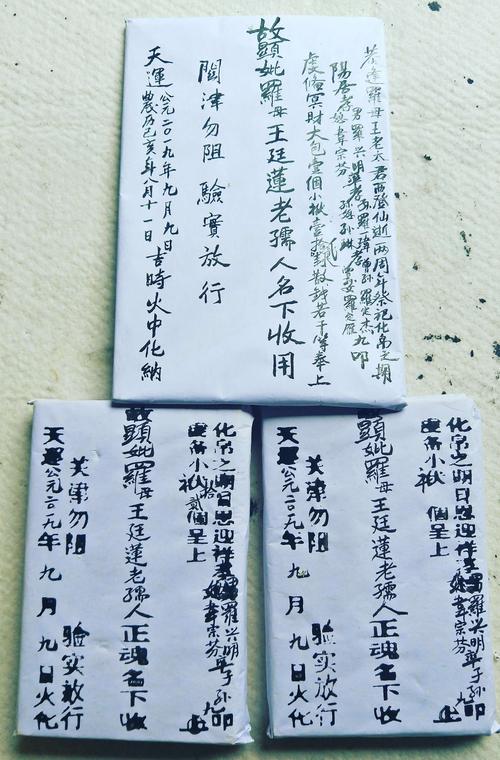 恭逢羅母王老太君西登仙逝兩周年祭祀化帛之期
陽居孝男羅興明
媳韋宗芬
九叩
虔備冥財大包壹個小袱壹拾封散錢若干等奉上
故顯妣羅母王廷蓮老孺人名下收用
関津勿阻 驗實放行
天運公元二〇一九年九月九日
農历己亥年八月十一日吉時火中化納
化帛之期日恩迎祥
羅興明
媳韋宗芬
子孙九叩
虔备小袱貳個呈上
故顯妣羅母王廷蓮老孺人正魂名下收
关津勿阻 验实放行
天運公元二〇一九年九月九日火化
化帛之期日恩迎祥
羅興明
媳韋宗芬
子孙九叩
虔备小袱個呈上
故顯妣羅母王廷蓮老孺人正魂名下收
关津勿阻 验实放行
天運公元二〇一九年九月九日火化